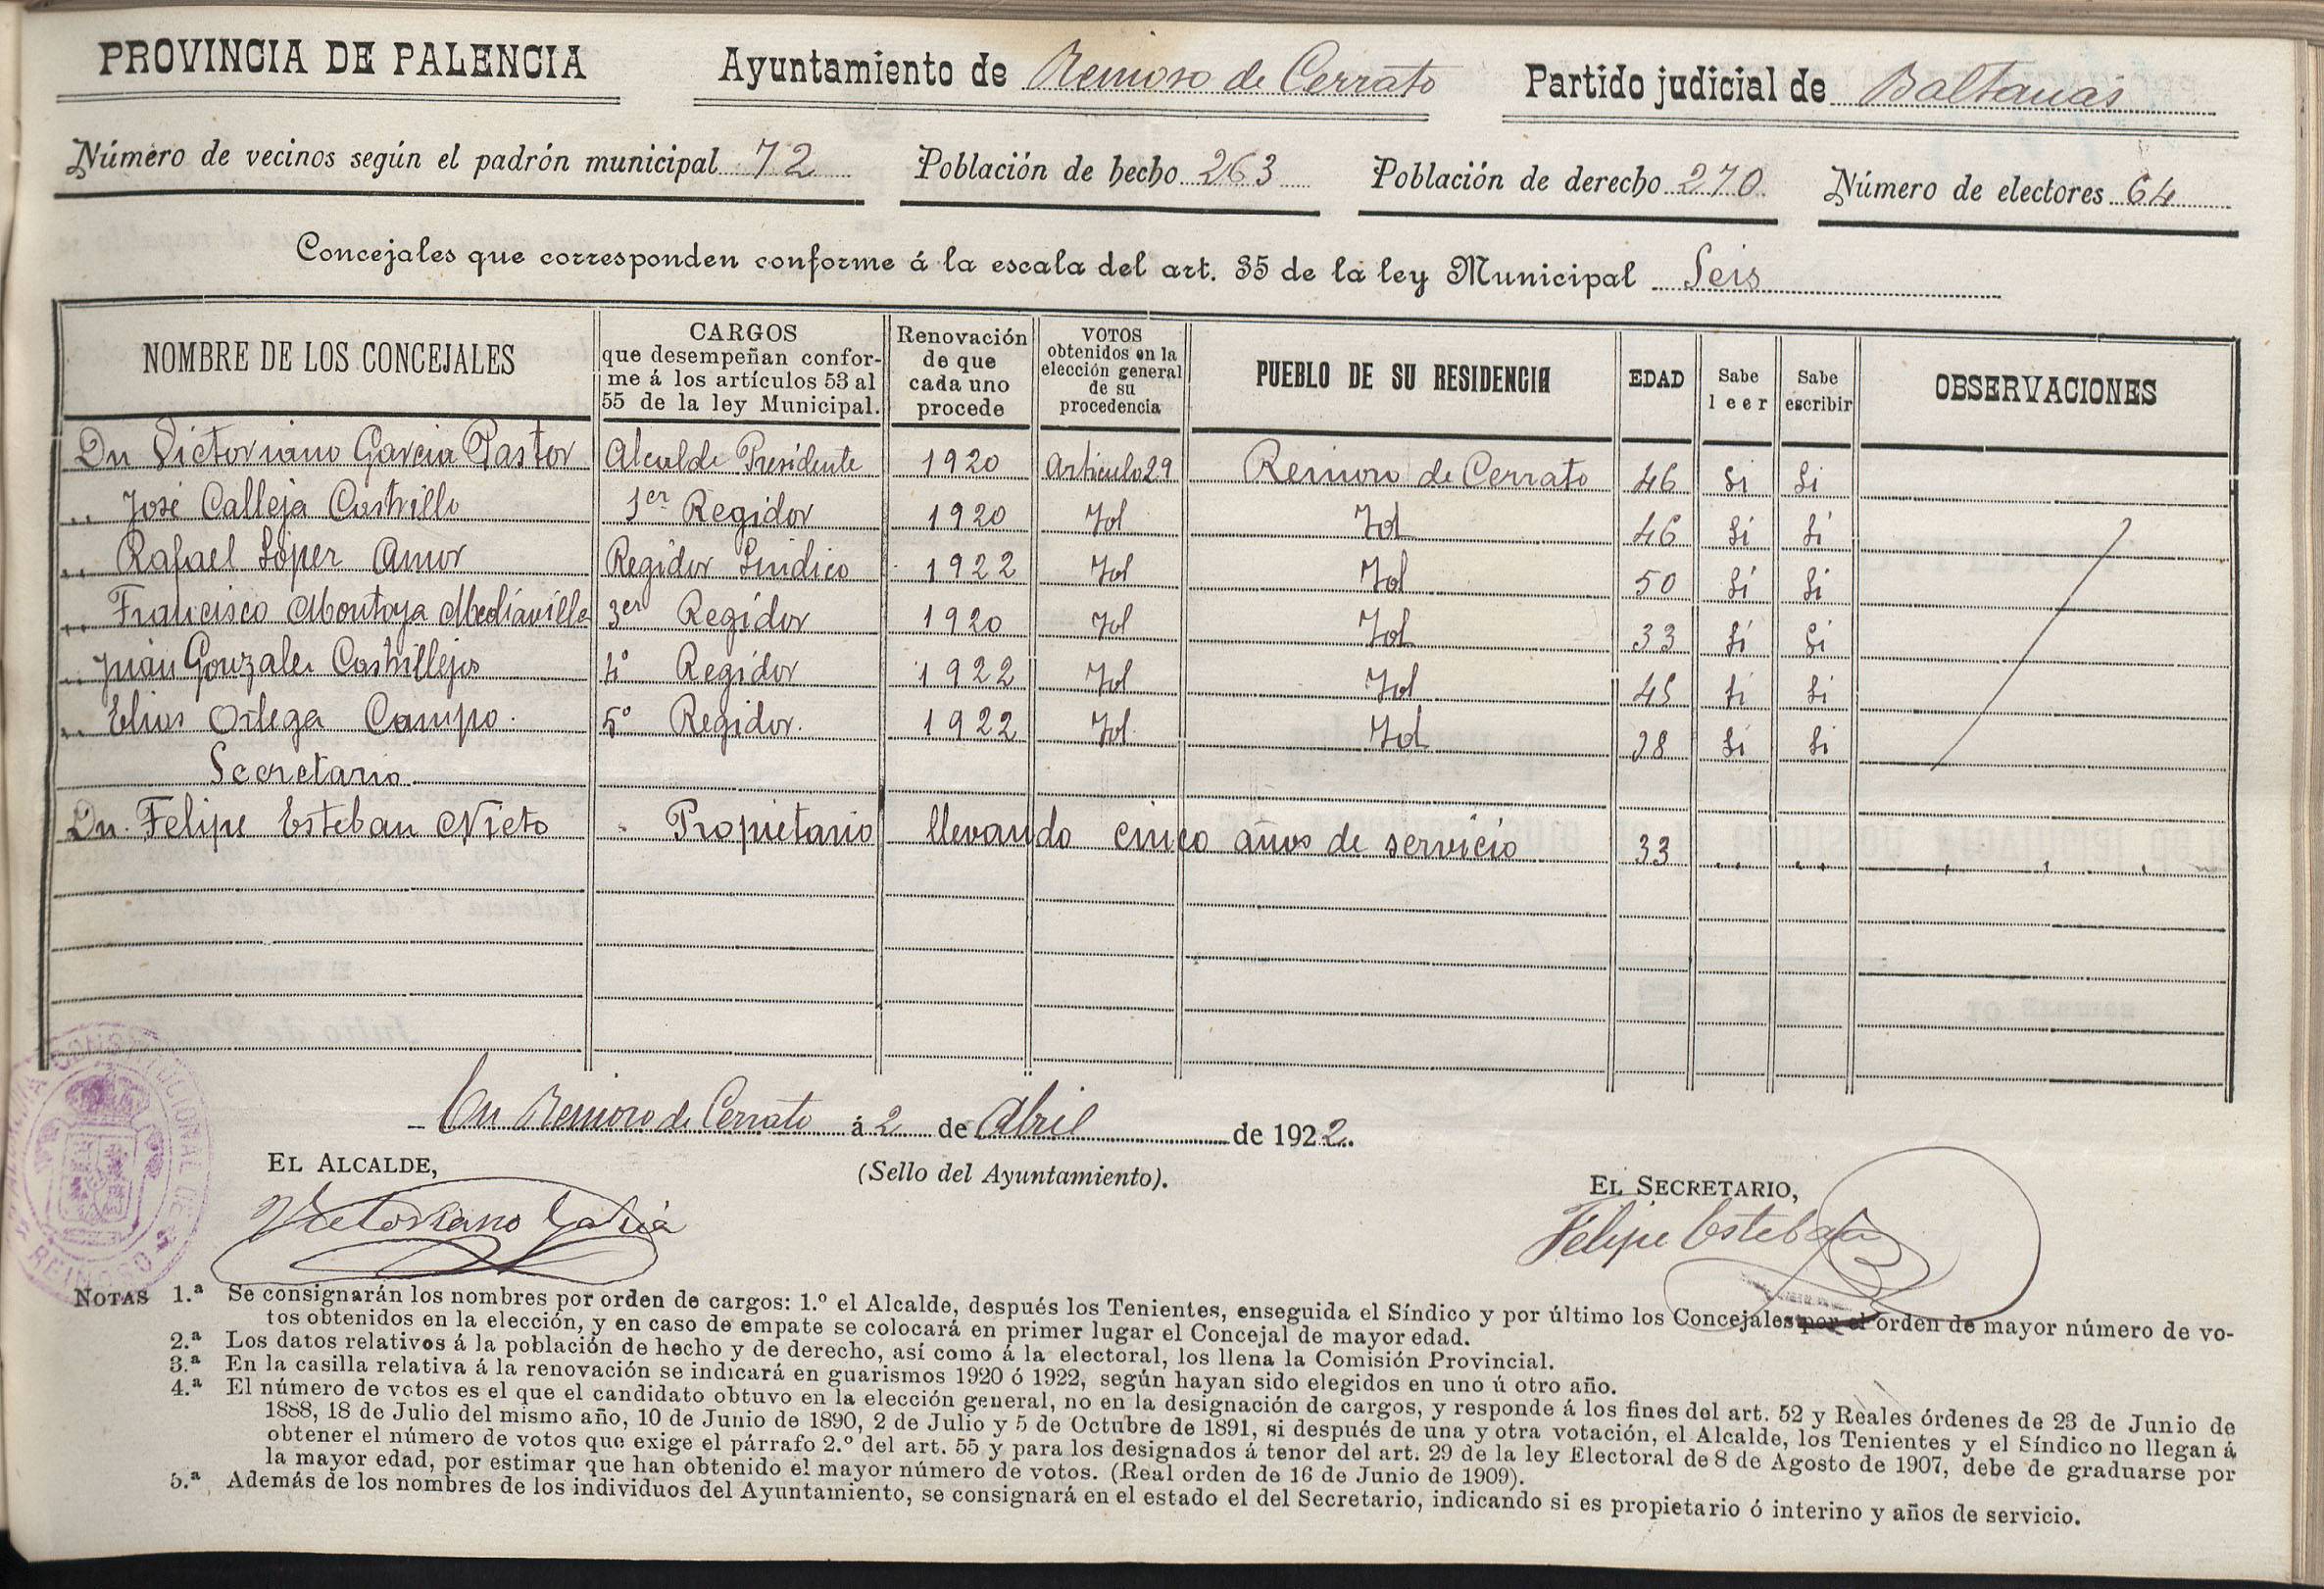 PROVINCIA DE PALENCIA Ayuntamiento de Reinoso de Cerrato Partido judicial de Baltanás
Número de vecinos según el padrón municipal 72 Población de hecho 263 Población de derecho 270 Número de electores 64
Concejales que corresponden conforme á la escala del art. 35 de la ley Municipal Seis
NOMBRE DE LOS CONCEJALES
CARGOS
que desempeñan confor-
me á los artículos 53 al
55 de la ley Municipal.
Renovación
de que
cada uno
procede
VOTOS
obtenidos en la
elección general
de su
procedencia
PUEBLO DE SU RESIDENCIA
EDAD
Sabe
leer
Sabe
escribir
OBSERVACIONES
Dn Victoriano Garcia Pastor Alcalde Presidente 1920 Articulo 29 Reinoso de Cerrato 46 Si Si
,, José Calleja Castrillo 1er Regidor 1920 Id Id 46 Si Si
,, Rafael Lóper Amor Regidor Sindico 1922 Id Id 50 Si Si
,, Francisco Montoya Mediavilla 3er Regidor 1920 Id Id 33 Si Si
,, Juan Gonzalez Castrillejos 4º Regidor 1922 Id Id 45 Si Si
,, Elias Ortega Campo. 5º Regidor. 1922 Id Id 28 Si Si
Secretario
Dn. Felipe Esteban Nieto Propietario llevando cinco años de servicio 33
En Reinoso de Cerrato á 2 de Abril de 1922.
EL ALCALDE, (Sello del Ayuntamiento). EL SECRETARIO,
Victoriano Garcia Felipe Esteban
ALCALDIA CONSTITUCIONAL DE REINOSO
NOTAS 1.ª Se consignarán los nombres por orden de cargos: 1.º el Alcalde, después los Tenientes, enseguida el Síndico y por último los Concejales por el orden de mayor número de vo-
tos obtenidos en la elección, y en caso de empate se colocará en primer lugar el Concejal de mayor edad.
2.ª Los datos relativos á la población de hecho y de derecho, así como á la electoral, los llena la Comisión Provincial.
3.ª En la casilla relativa á la renovación se indicará en guarismos 1920 ó 1922, según hayan sido elegidos en uno ú otro año.
4.ª El número de votos es el que el candidato obtuvo en la elección general, no en la designación de cargos, y responde á los fines del art. 52 y Reales órdenes de 23 de Junio de
1888, 18 de Julio del mismo año, 10 de Junio de 1890, 2 de Julio y 5 de Octubre de 1891, si después de una y otra votación, el Alcalde, los Tenientes y el Síndico no llegan á
obtener el número de votos que exige el párrafo 2.º del art. 55 y para los designados á tenor del art. 29 de la ley Electoral de 8 de Agosto de 1907, debe de graduarse por
la mayor edad, por estimar que han obtenido el mayor número de votos. (Real orden de 16 de Junio de 1909).
5.ª Además de los nombres de los individuos del Ayuntamiento, se consignará en el estado el del Secretario, indicando si es propietario ó interino y años de servicio.